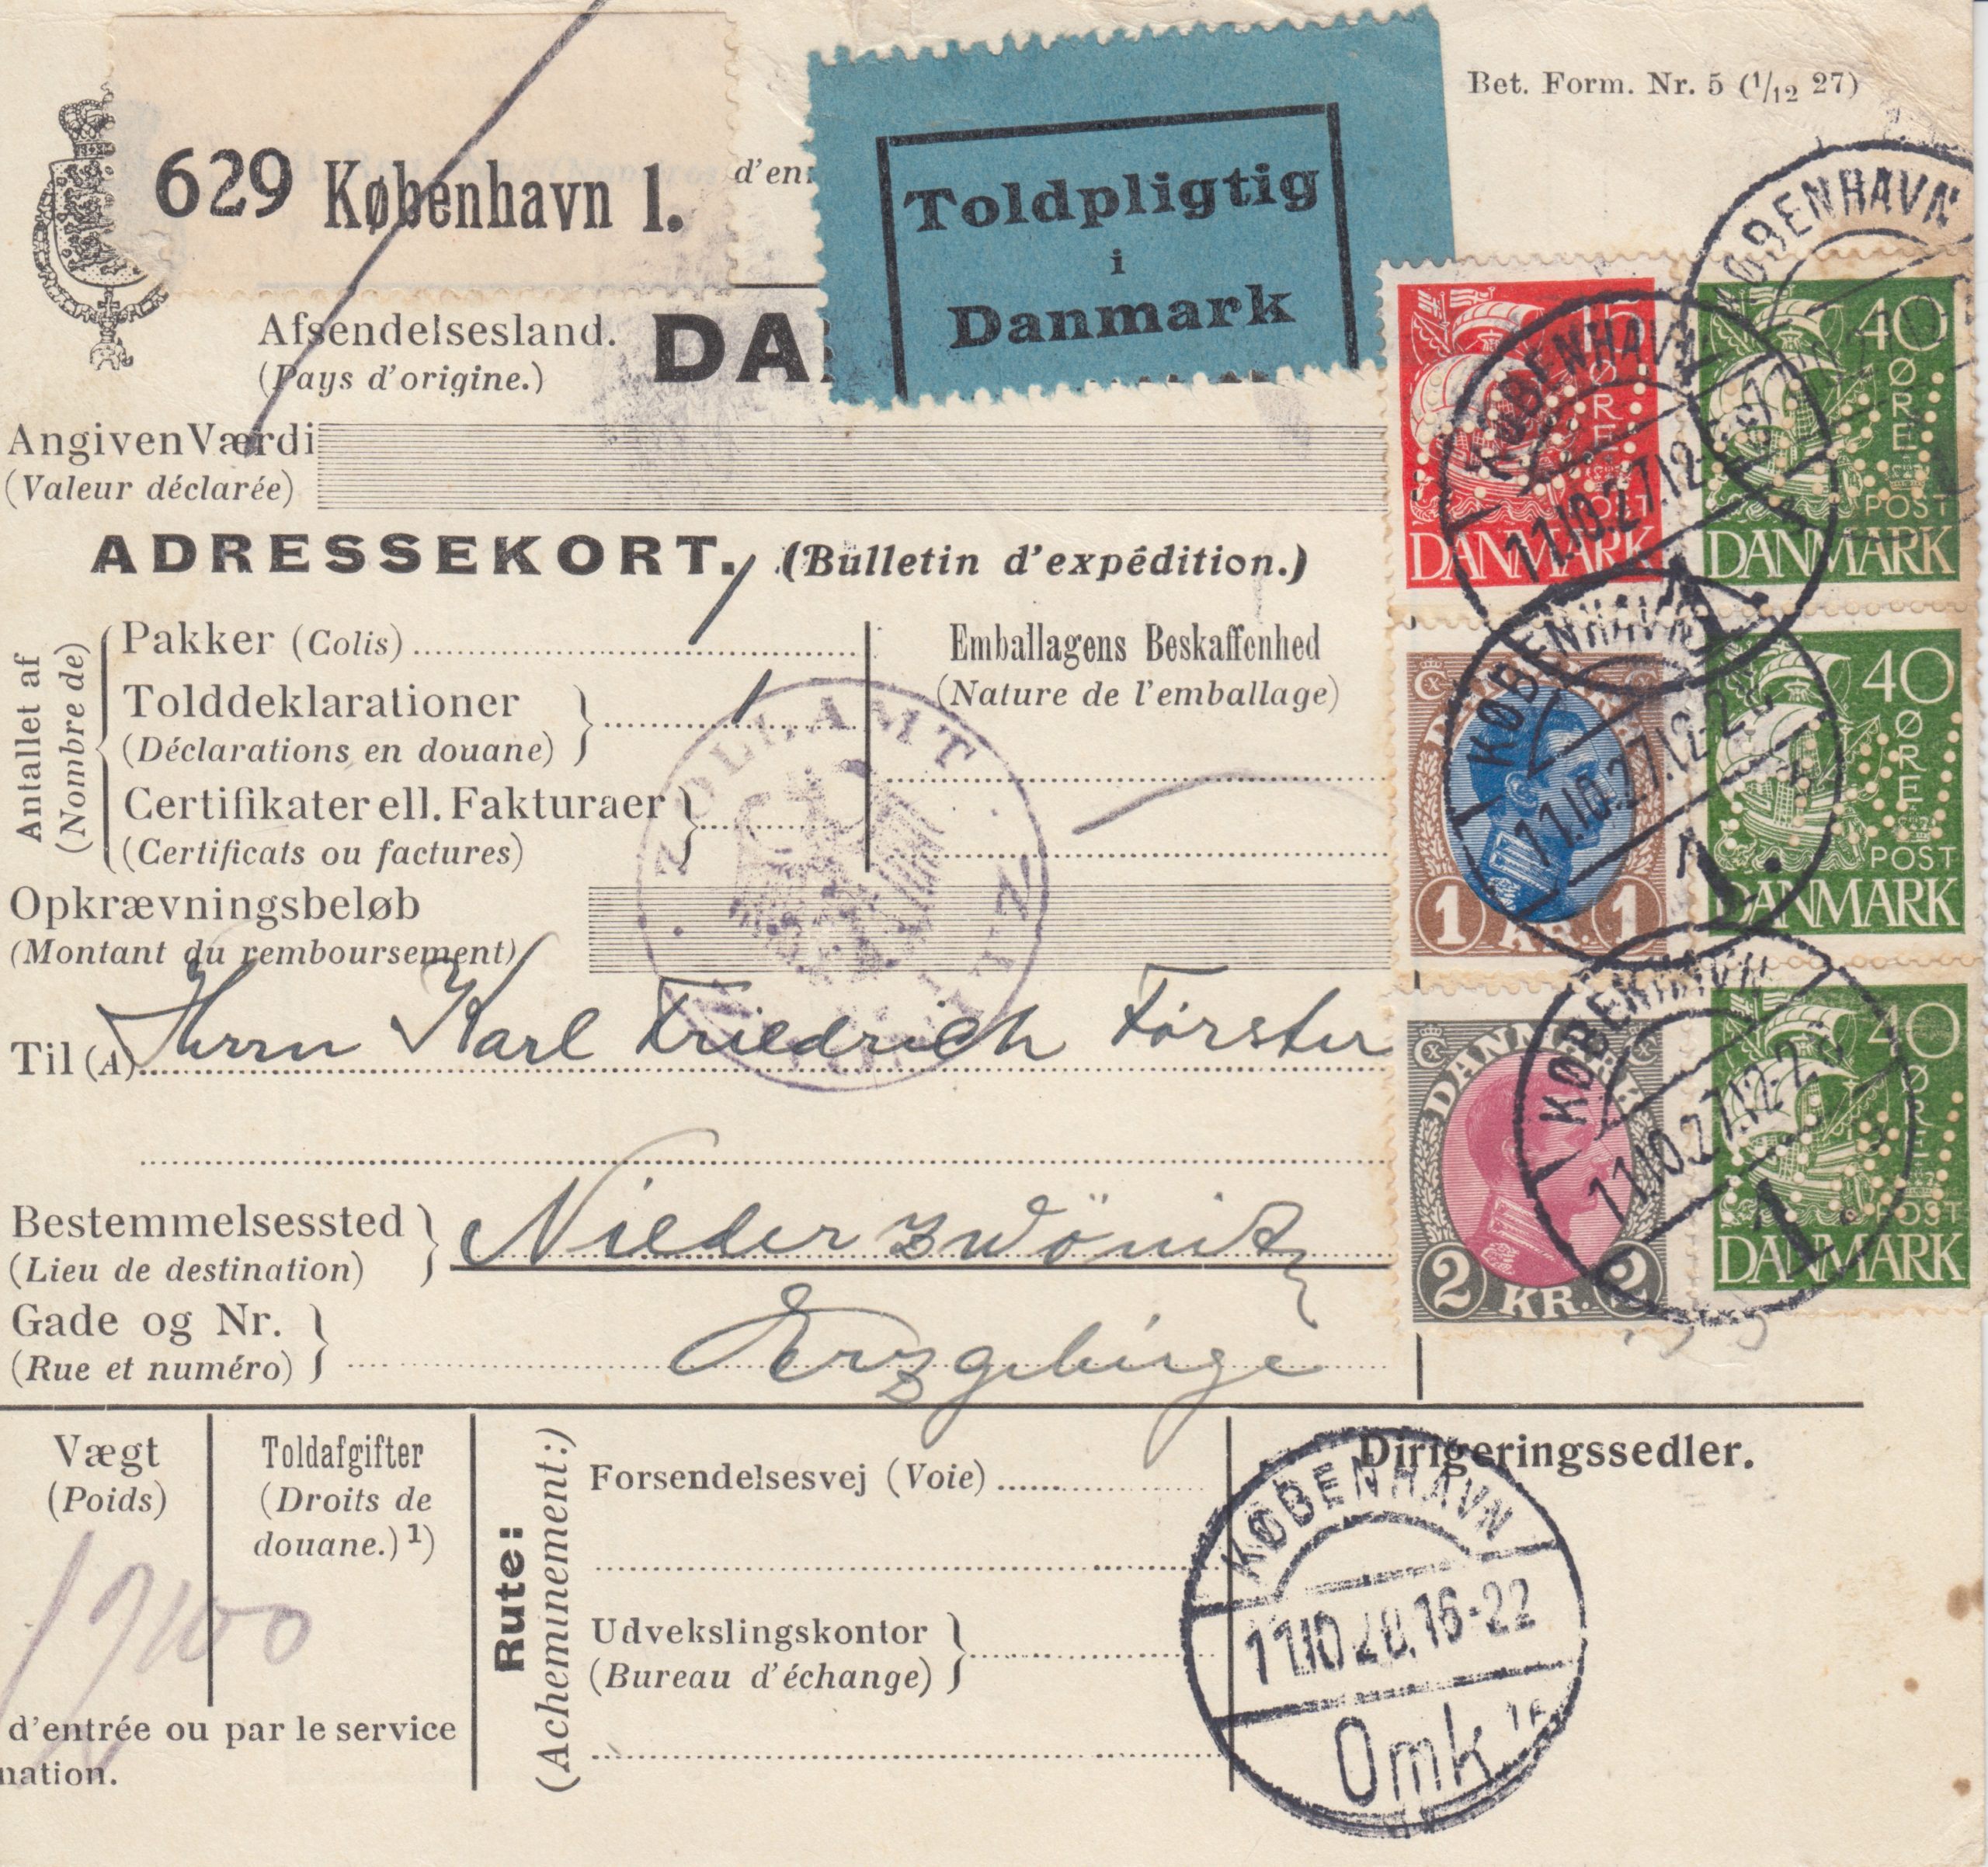 Bet. Form. Nr. 5 (1/12 27)
629 København 1.
d'en
Toldpligtig
i
Danmark
Afsendelsesland.
(Pays d'origine.)
DA
Angiven Værdi
(Valeur déclarée)
ADRESSEKORT. (Bulletin d'expédition.)
Antallet af
(Nombre de)
Pakker (Colis) 1
Tolddeklarationer
(Déclarations en douane) 1
Certifikater ell. Fakturaer
(Certificats ou factures)
Emballagens Beskaffenhed
(Nature de l'emballage)
ZOLLAMT
Opkrævningsbeløb
(Montant du remboursement)
Til (A) Herrn Karl Friedrich Förster
Bestemmelsessted
(Lieu de destination)
Niederzwönitz
Gade og Nr.
(Rue et numéro)
Erzgebirge
15 ØRE POST DANMARK
40 ØRE POST DANMARK
DANMARK 1 KR. 1
40 ØRE POST DANMARK
DANMARK 2 KR. 2
40 ØRE POST DANMARK
KØBENHAVN
KØBENHAVN
11.10.27.12-
1.
KØBENHAVN
11.10.27.12-
1.
KØBENHAVN
11.10.27.12-
1.
Vægt
(Poids)
Toldafgifter
(Droits de
douane.) 1)
Rute:
(Acheminement:)
Forsendelsesvej (Voie)
Udvekslingskontor
(Bureau d'échange)
Dirigeringssedler.
KØBENHAVN
11.10 28.16-22
Omk
d'entrée ou par le service
nation.